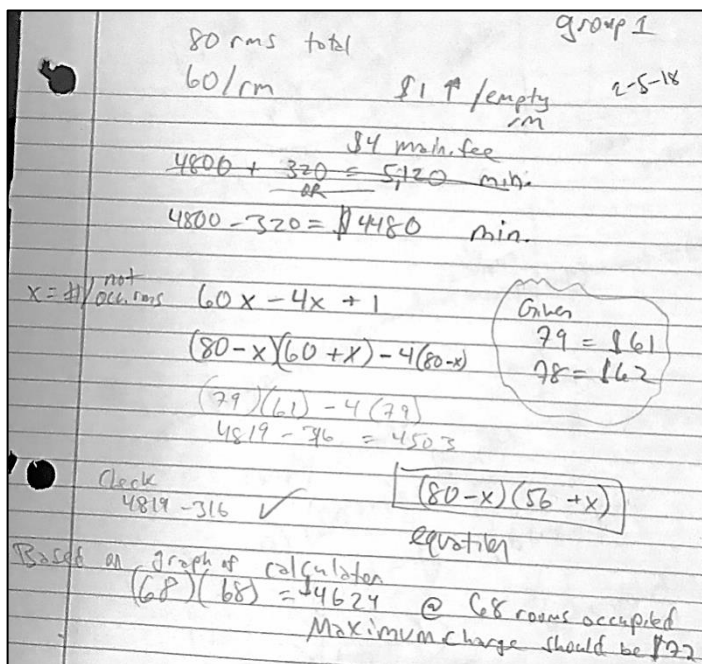 group 1
80 rms total
60/rm $1 ↑ /empty rm
2-5-18
$4 main. fee
4800 + 320 = 5,120 min.
OR
4800 - 320 = $4480 min.
x = #/not occ. rms 60x - 4x + 1
Given
79 = $61
78 = $62
(80-x)(60+x) - 4(80-x)
(79)(61) - 4(79)
4819 - 316 = 4503
Check
4819 - 316 ✓
(80-x)(56+x)
equation
Based on graph of calculator
(68)(68) = $4624 @ 68 rooms occupied
Maximum charge should be $72